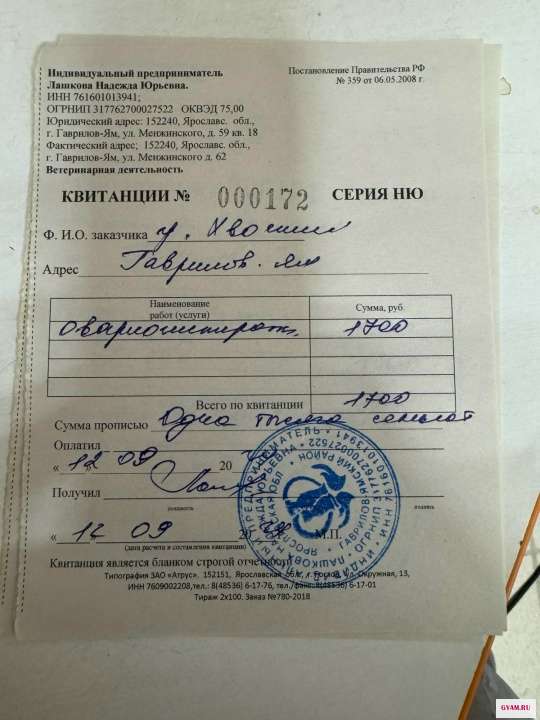 Индивидуальный предприниматель
Лашкова Надежда Юрьевна.
ИНН 761601013941;
ОГРНИП 317762700027522 ОКВЭД 75,00
Юридический адрес: 152240, Ярославс. обл.,
г. Гаврилов-Ям, ул. Менжинского, д. 59 кв. 18
Фактический адрес; 152240, Ярославс. обл.,
г. Гаврилов-Ям, ул. Менжинского д. 62
Ветеринарная деятельность
Постановление Правительства РФ
№ 359 от 06.05.2008 г.
КВИТАНЦИИ № 000172 СЕРИЯ НЮ
Ф. И.О. заказчика
Адрес Гаврилов-Ям
Наименование
работ (услуги)
Сумма, руб.
1700
Всего по квитанции 1700
Сумма прописью Одна тысяча семьсот
Оплатил
"12 09 20
Получил
должность
подпись
"12 09 20 М.П.
(дата расчета и составления квитанции)
Квитанция является бланком строгой отчетности
Типография ЗАО «Атрус», 152151, Ярославская обл., г. Ростов, ул. Окружная, 13,
ИНН 7609002208,тел.: 8(48536) 6-17-76, тел./факс: 8(48536) 6-17-01
Тираж 2х100. Заказ №780-2018
GYAM.RU